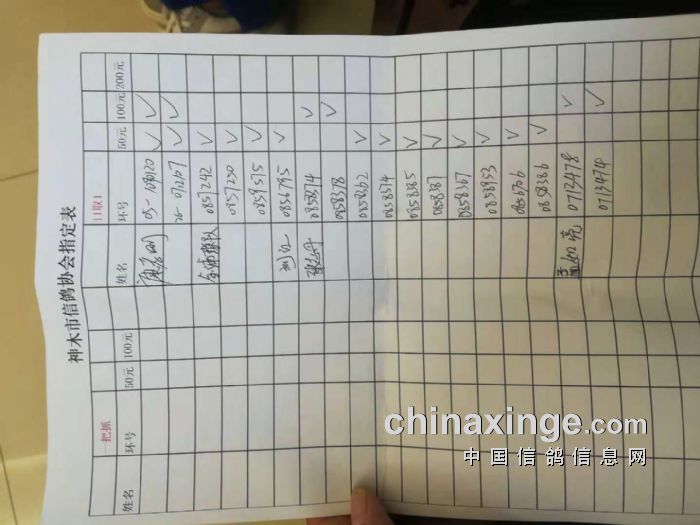 神木市信鸽协会指定表
一把抓 11取1
姓名 环号 50元 100元 姓名 环号 50元 100元 200元
05-1091120 ✓ ✓
26-0112107 ✓ ✓
0857242 ✓
0857250 ✓
0859515 ✓
刘仁 0856795 ✓
0858374 ✓
0858378 ✓
0858362 ✓
0858514 ✓
0858385 ✓
0858387 ✓
0858367 ✓
0858953 ✓
0856706 ✓
0858386 ✓
孟如亮 0713478 ✓
0713474 ✓
chinaxinge.com
中国信鸽信息网